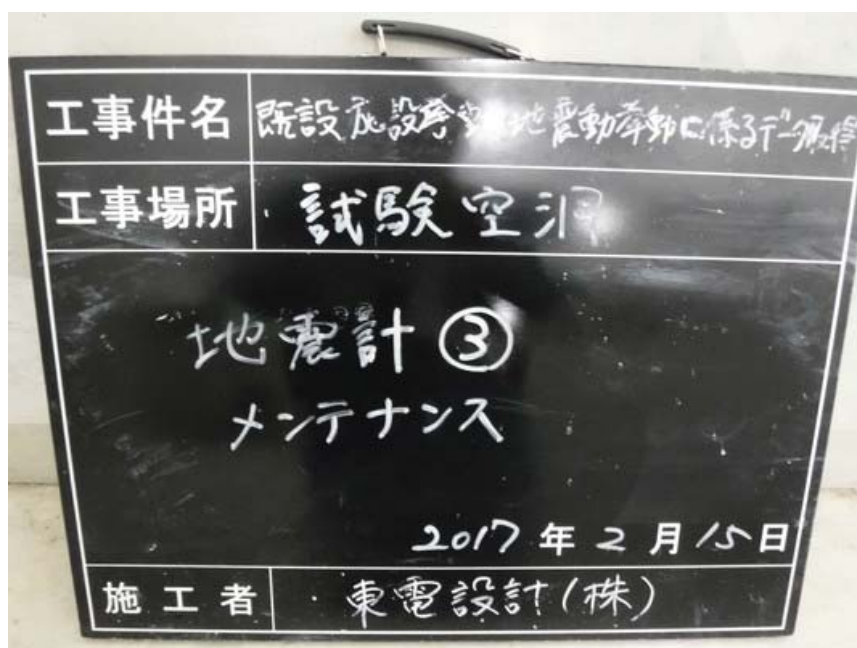 工事件名 既設施設等 地震動挙動に係るデータ取得
工事場所 試験空洞
地震計③
メンテナンス
2017年2月15日
施工者 東電設計(株)